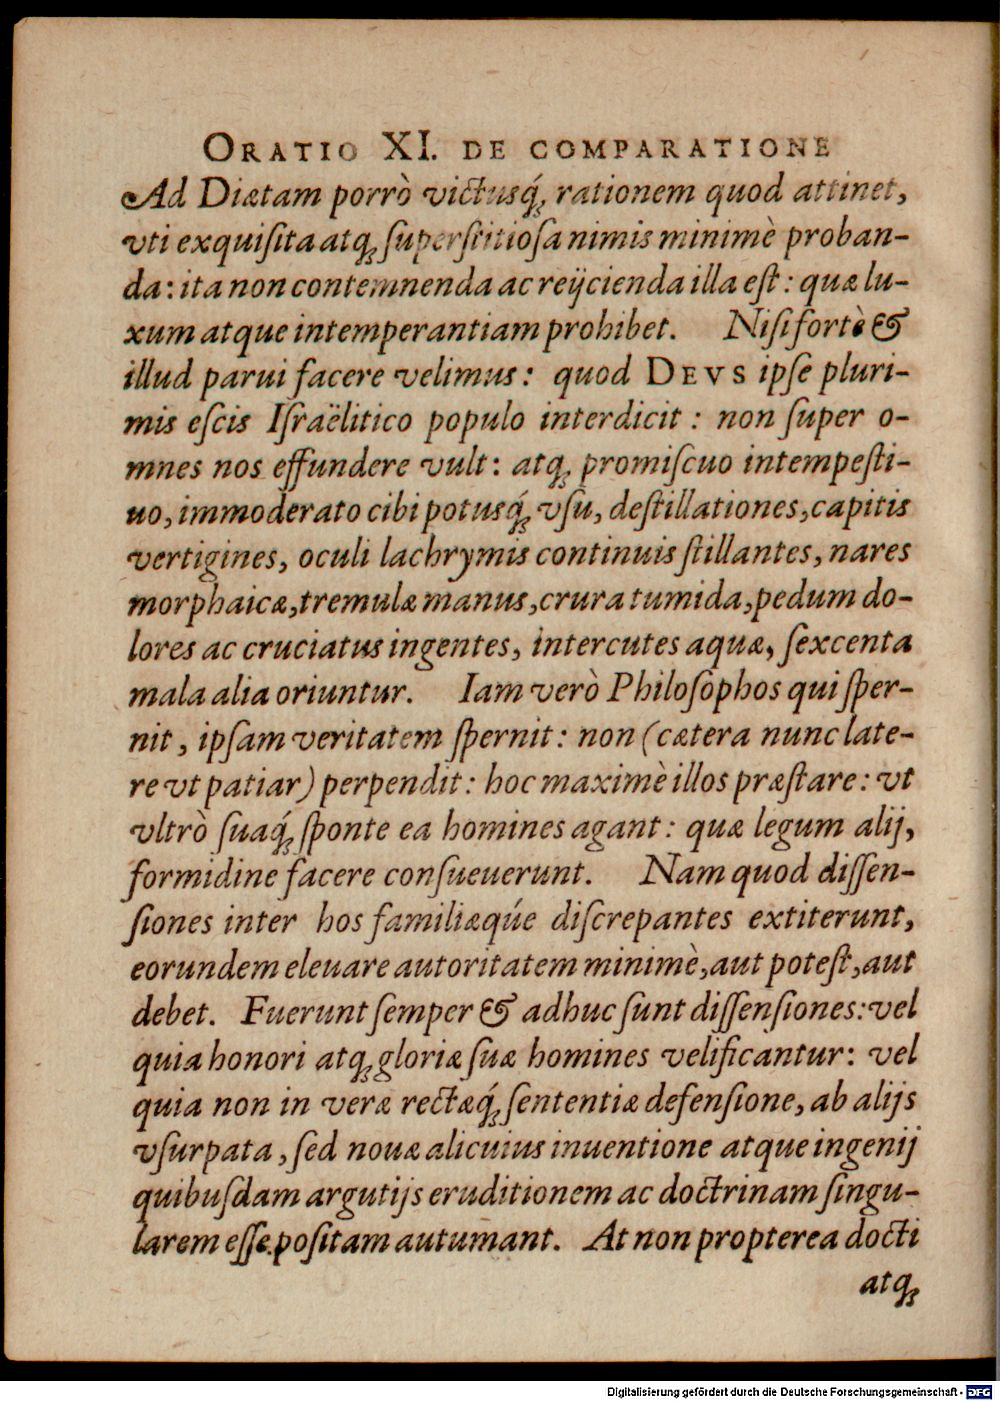 ORATIO XI. DE COMPARATIONE
Ad Diætam porrò victusq́; rationem quod attinet,
vti exquiſita atq; ſuperſtitioſa nimis minimè proban-
da: ita non contemnenda ac reijcienda illa eſt: quæ lu-
xum atque intemperantiam prohibet. Niſi fortè &
illud parui facere velimus: quod DEVS ipſe pluri-
mis eſcis Iſraëlitico populo interdicit: non ſuper o-
mnes nos effundere vult: atq; promiſcuo intempeſti-
uo, immoderato cibi potusq́; vſu, deſtillationes, capitis
vertigines, oculi lachrymis continuis ſtillantes, nares
morphaicæ, tremulæ manus, crura tumida, pedum do-
lores ac cruciatus ingentes, intercutes aquæ, ſexcenta
mala alia oriuntur. Iam verò Philoſophos qui ſper-
nit, ipſam veritatem ſpernit: non (cætera nunc late-
re vt patiar) perpendit: hoc maximè illos præſtare: vt
vltrò ſuaq́; ſponte ea homines agant: quæ legum alij,
formidine facere conſueuerunt. Nam quod diſſen-
ſiones inter hos familiæq́ue diſcrepantes extiterunt,
eorundem eleuare autoritatem minimè, aut poteſt, aut
debet. Fuerunt ſemper & adhuc ſunt diſſenſiones: vel
quia honori atq; gloriæ ſuæ homines velificantur: vel
quia non in veræ rectæq́; ſententiæ defenſione, ab alijs
vſurpata, ſed nouæ alicuius inuentione atque ingenij
quibuſdam argutijs eruditionem ac doctrinam ſingu-
larem eſſe poſitam autumant. At non propterea docti
atq;
Digitalisierung gefördert durch die Deutsche Forschungsgemeinschaft - DFG